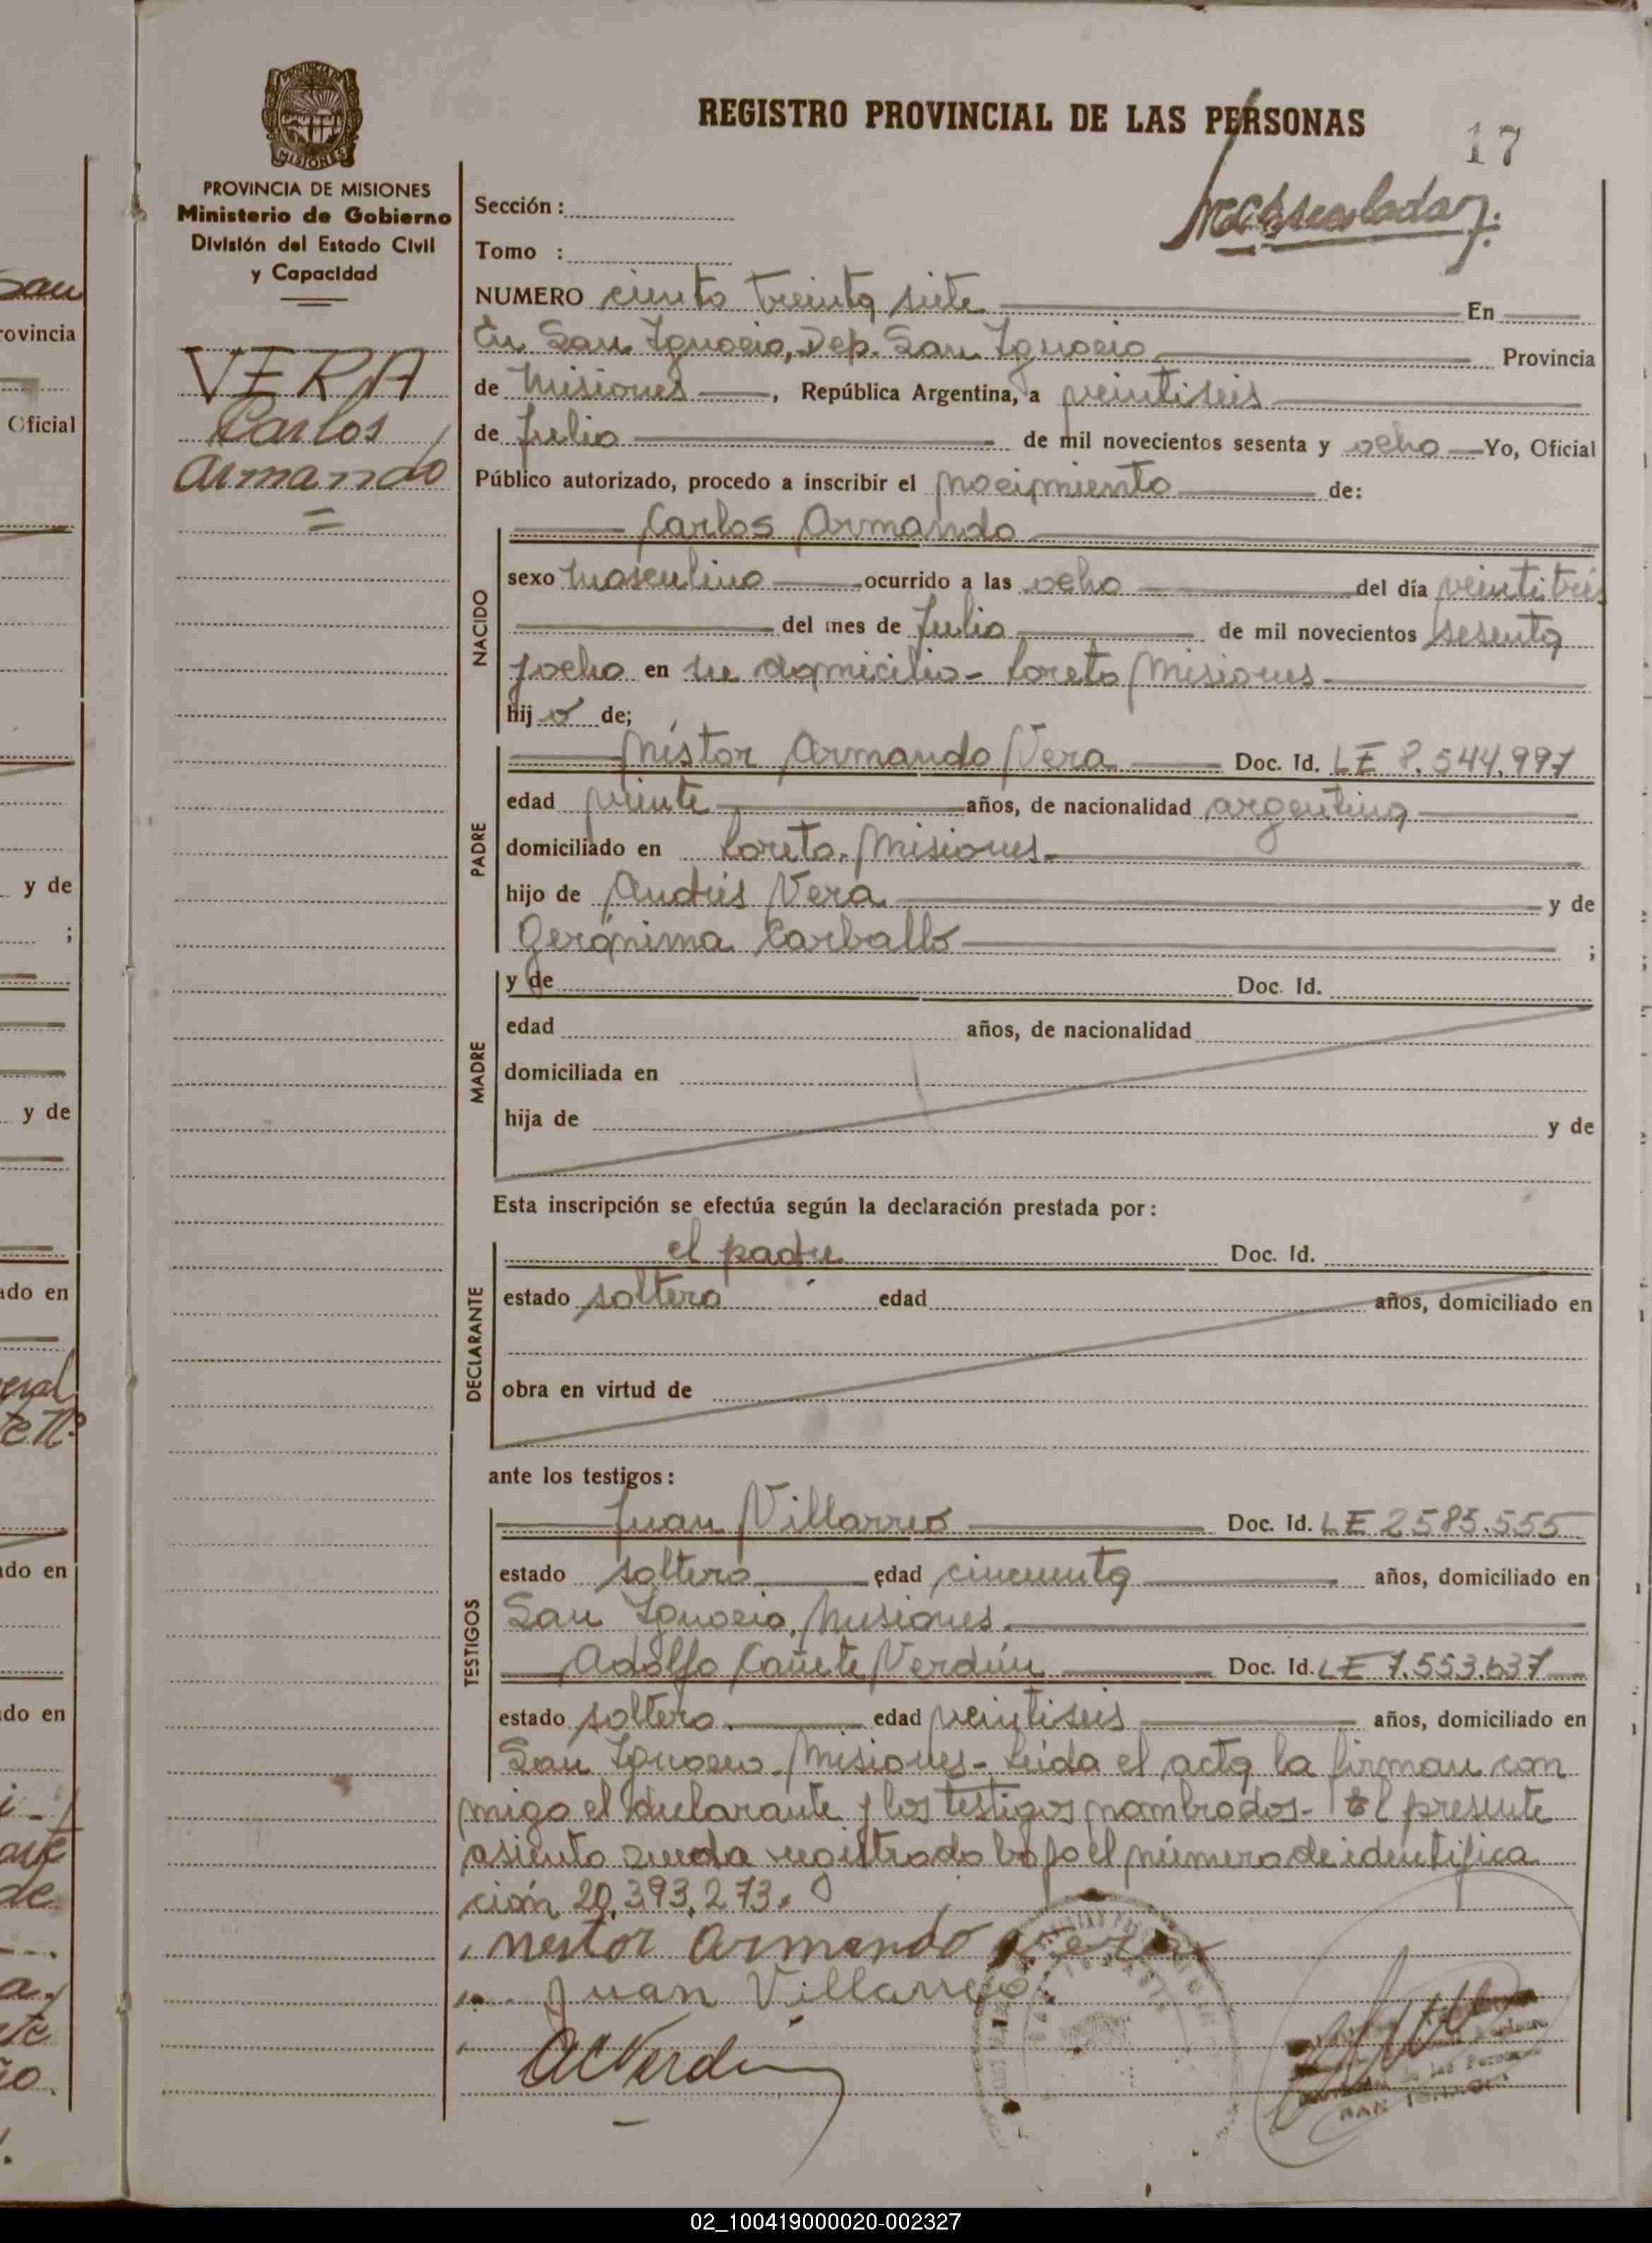 REGISTRO PROVINCIAL DE LAS PERSONAS
17
PROVINCIA DE MISIONES
MISIONES
PROVINCIA DE MISIONES
Ministerio de Gobierno
División del Estado Civil
y Capacidad
VERA
Carlos
Armando
=
Sección :
Tomo :
NUMERO ciento treinta siete En
En San Ignacio, Dep. San Ignacio Provincia
de Misiones , República Argentina, a veintiseis
de Julio de mil novecientos sesenta y ocho Yo, Oficial
Público autorizado, procedo a inscribir el nacimiento de:
Carlos Armando
NACIDO
sexo masculino ocurrido a las ocho del día veintitrés
del mes de Julio de mil novecientos sesenta
y ocho en su domicilio - Loreto Misiones
hij o de;
PADRE
Néstor Armando Vera Doc. Id. LE 8.544.997
edad veinte años, de nacionalidad argentina
domiciliado en Loreto. Misiones.
hijo de Andrés Vera y de
Gerónima Carballo ;
MADRE
y de Doc. Id.
edad años, de nacionalidad
domiciliada en
hija de y de
Esta inscripción se efectúa según la declaración prestada por :
DECLARANTE
el padre Doc. Id.
estado soltero edad años, domiciliado en
obra en virtud de
ante los testigos :
TESTIGOS
Juan Villarreo Doc. Id. LE 2585.555
estado soltero edad cincuenta años, domiciliado en
San Ignacio, Misiones.
Adolfo Cañete Verdún Doc. Id. LE 7.553.637
estado soltero. edad veintiseis años, domiciliado en
San Ignacio. Misiones - Leída el acta la firman con
migo el declarante y los testigos nombrados - El presente
asiento queda registrado bajo el número de identifica
ción 20.393.273.
Nestor Armando Vera
Juan Villarreo
ACVerdún
SAN IGNACIO
San
rovincia
Oficial
y de
;
y de
ado en
ado en
ado en
02_100419000020-002327